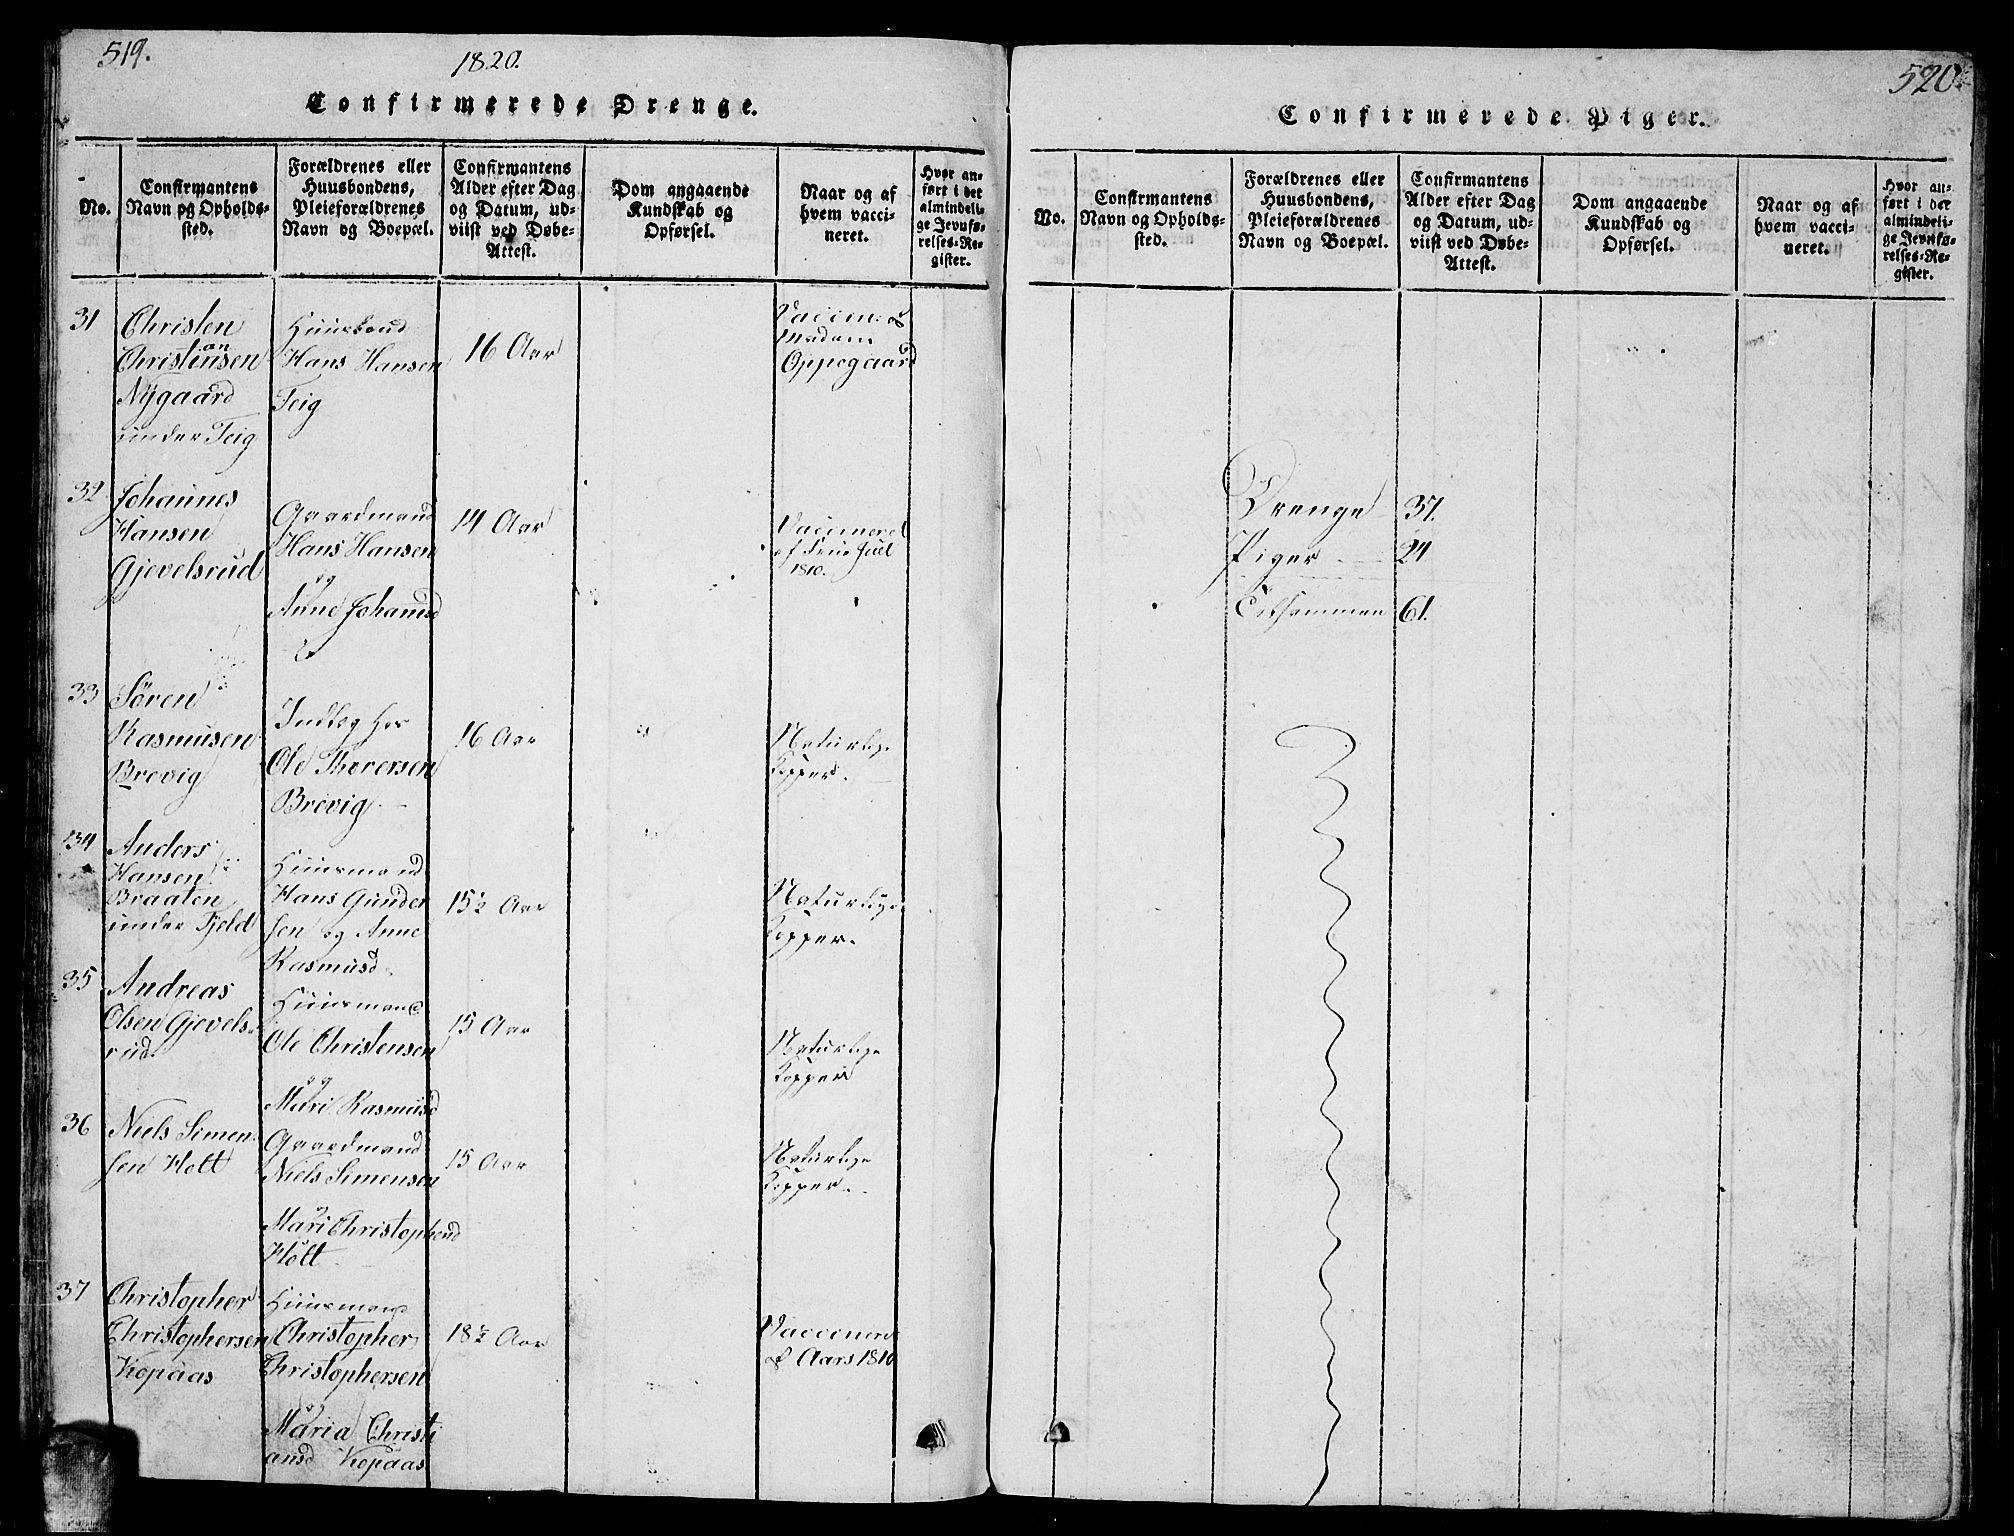 519.
1820.
Confirmerede Drenge.
No.
Confirmantens
Navn og Opholds-
sted.
Forældrenes eller
Huusbondens,
Pleieforældrenes
Navn og Boepæl.
Confirmantens
Alder efter Dag
og Datum, ud-
viist ved Døbe-
Attest.
Dom angaaende
Kundskab og
Opførsel.
Naar og af
hvem vacci-
neret.
Hvor an-
ført i det
almindeli-
ge Jevnfø-
relses-Re-
gister.
31
Christen
an
Christensen
Nygaard
under Teig
Huusbond
Hans Hansen
Teig
16 Aar
Vaccin: af
Madam
Oppegaard
32
Johannes
Hansen
Gjevelsrud
Gaardmand
Hans Hansen
og
Anne Johannsd
14 Aar
Vaccineret
af Frue Juel
1810.
33
Søren
Rasmusen
Brevig
Indlæg hos
Ole Thoresen
Brevig.
16 Aar
Naturlige
Kopper.
34
Anders
Hansen
Braaten
under Fjeld
Huusmand
Hans Gunder
sen og Anne
Rasmusd
15½ Aar
Naturlige
Kopper.
35
Andreas
Olsen Gjevels-
rud.
Huusmand
Ole Christensen
og
Mari Rasmusd
15 Aar
Naturlige
Kopper
36
Niels Simen-
sen Holt
Gaardmand
Niels Simensen
Mari Christophersd
Holt
15 Aar
Naturlige
Kopper.
37
Christopher
Christophersen
Kopaas
Huusmand
Christopher
Christophersen
og
Maria Christi
ansd Kopaas
18½ Aar
Vaccineret
af Aars 1810
520.
Confirmerede Piger.
No.
Confirmantens
Navn og Opholds-
sted.
Forældrenes eller
Huusbondens,
Pleieforældrenes
Navn og Boepæl.
Confirmantens
Alder efter Dag
og Datum, ud-
viist ved Døbe-
Attest.
Dom angaaende
Kundskab og
Opførsel.
Naar og af
hvem vacci-
neret.
Hvor an-
ført i det
almindeli-
ge Jevnfø-
relses-Re-
gister.
Drenge 37.
Piger 24
Tilsammen 61.